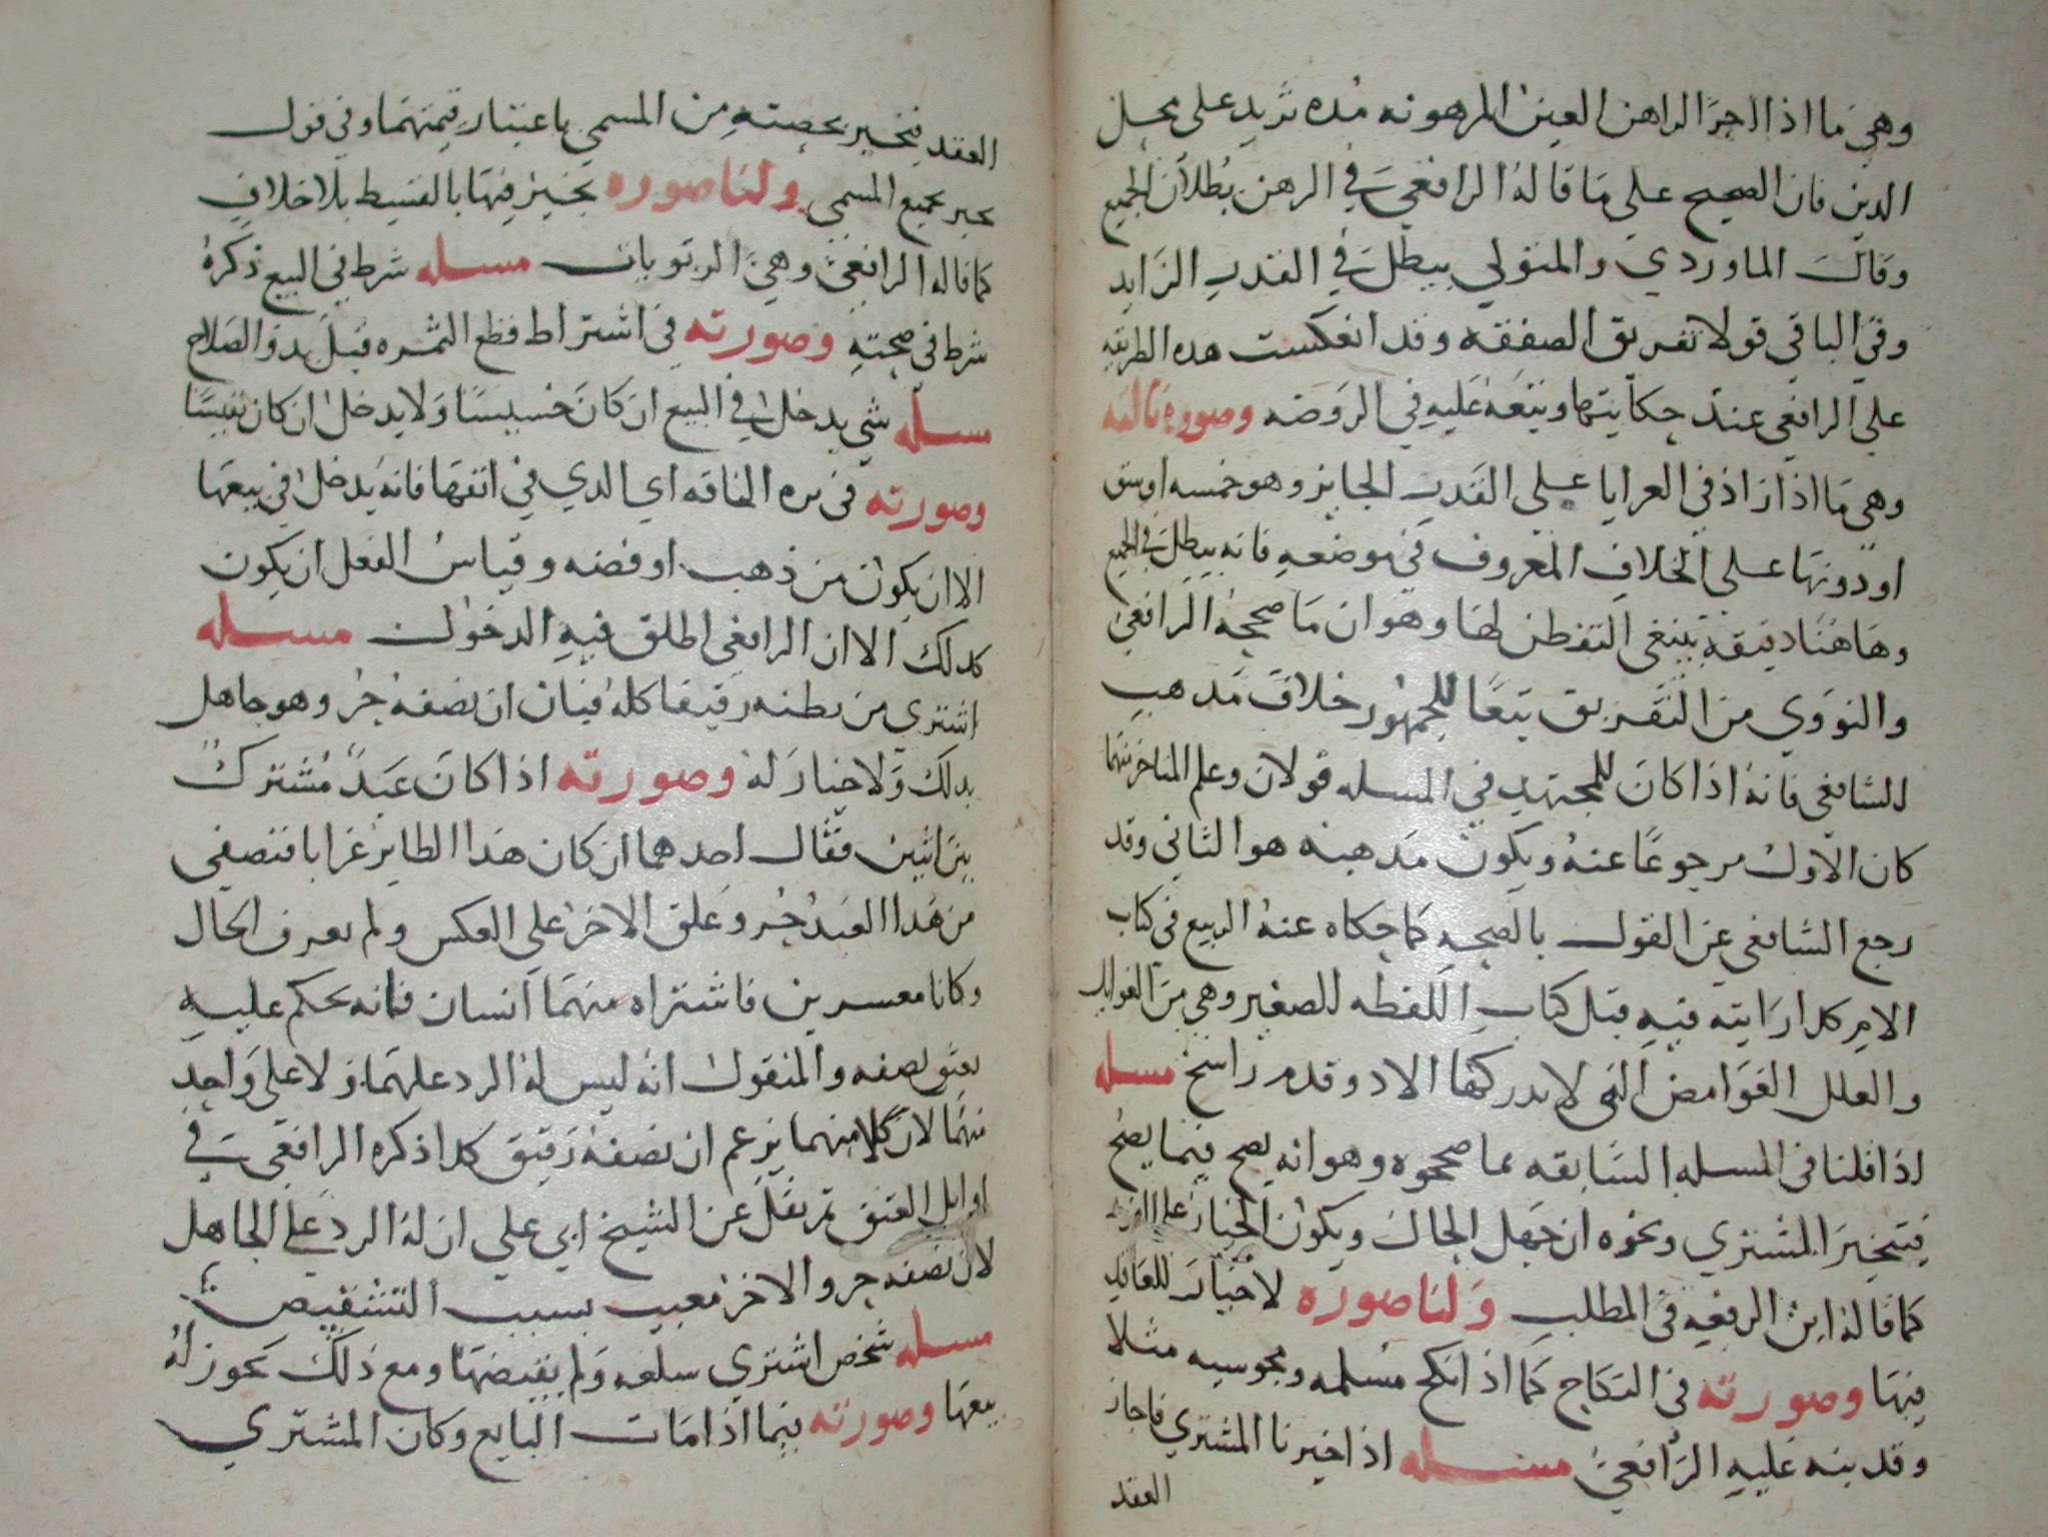 وهي ما اذا اجر الراهن العين المرهونه مده تزيد على محل
الدين فان الصحيح على ما قاله الرافعي في الرهن بطلان الجميع
وقال الماوردي والمتولي يبطل في القدر الزايد
وفي الباقي قولا تفريق الصفقه وقد انعكست هذه الطريقه
على الرافعي عند حكايتها وتبعه عليه في الروضه وصوره ثالثه
وهي ما اذا زاد في العرايا على القدر الجايز وهو خمسه اوسق
او دونها على الخلاف المعروف في موضعه فانه يبطل في الجميع
وهاهنا دقيقة ينبغي التفطن لها وهو ان ما صححه الرافعي
والنووي من التفريق تبعا للجمهور خلاف مذهب
الشافعي فانه اذا كان للمجتهد في المسله قولان وعلم المتاخر منهما
كان الاول مرجوعا عنه ويكون مذهبه هو الثاني وقد
رجع الشافعي عن القول بالصحه كما حكاه عنه الربيع في كتاب
الام كذا رايته فيه قبل كتاب اللقطه الصغير وهي من الفوايد
والعلل الغوامض التي لا يدركها الا ذو قدم راسخ مسله
اذا قلنا في المسله السابقه بما صححوه وهو انه يصح فيما يصح
فيتخير المشتري ونحوه ان جهل الحال ويكون الخيار على الفور
كما قاله ابن الرفعه في المطلب ولنا صوره لا خيار للعاقد
فيها وصورته في النكاح كما اذا نكح مسلمه ومجوسيه مثلا
وقد نبه عليه الرافعي مسله اذا خيرنا المشتري فاجاز
العقد
العقد فيخير بحصته من المسمى باعتبار قيمتهما وفي قول
يخير بجميع المسمى ولنا صوره يخير فيها بالقسيط بلا خلاف
كما قاله الرافعي وهي الربويات مسله شرط في البيع ذكره
شرط في صحته وصورته في اشتراط قطع الثمره قبل بدو الصلاح
مسله شي يدخل في البيع ان كان خسيسا ولا يدخل ان كان نفيسا
وصورته في بره الناقه اي الذي في انفها فانه يدخل في بيعها
الا ان يكون من ذهب او فضه وقياس القفل ان يكون
كذلك الا ان الرافعي اطلق فيه الدخول مسله
اشتري من يظنه رقيقا كله فبان ان نصفه حر وهو جاهل
بذلك ولا خيار له وصورته اذا كان عبد مشترك
بين اثنين فقال احدهما ان كان هذا الطاير غرابا فنصفي
من هذا العبد حر وعلق الاخر على العكس ولم يعرف الحال
وكانا معسرين فاشتراه منهما انسان فانه يحكم عليه
بعتق نصفه والمنقول انه ليس له الرد عليهما ولا على واحد
منهما لان كلا منهما يزعم ان نصفه رقيق كذا ذكره الرافعي في
اوايل العتق ثم نقل عن الشيخ ابي علي ان له الرد على الجاهل
لان نصفه حر والاخر معيب بسبب التشقيص
مسله شخص اشتري سلعه ولم يقبضها ومع ذلك يجوز له
بيعها وصورته فيما اذا مات البايع وكان المشتري